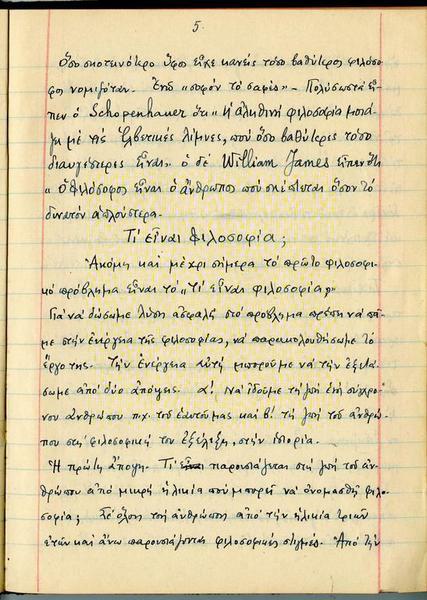 5.
Ὅσο σκοτεινότερο ὕφος εἶχε κανείς τόσο βαθύτερος φιλόσο-
φος νομιζόταν. Ἐνῶ "σοφόν τό σαφές" – Πολύ σωστά εἶ-
πεν ὁ Schopenhauer ὅτι "Ἡ ἀληθινή φιλοσοφία μοιά-
ζει με τίς Ἑλβετικές λίμνες, πού ὅσο βαθύτερες τόσο
διαυγέστερες εἶναι." ὁ δέ William James εἶπεν ὅτι
"Ὁ φιλόσοφος εἶναι ὁ ἄνθρωπος πού σκέπτεται ὅσον τό
δυνατόν ἁπλούστερα.
Τί εἶναι φιλοσοφία;
Ἀκόμη καί μέχρι σήμερα τό πρῶτο φιλοσοφι-
κό πρόβλημα εἶναι τό "Τί εἶναι φιλοσοφία;"
Γιά νά δώσωμε λύση ἀσφαλῆ στό πρόβλημα πρέπει νά πᾶ-
με στήν ἐνέργεια τῆς φιλοσοφίας, νά παρακολουθήσωμε τό
ἔργο της. Τήν ἐνέργεια αὐτή μποροῦμε νά τήν ἐξετά-
σωμε ἀπό δύο ἀπόψεις. α! Νά ἰδοῦμε τή ζωή ἑνός συγχρό-
νου ἀνθρώπου π.χ. τοῦ ἑαυτοῦ μας καί β! τή ζωή τοῦ ἀνθρώ-
που στή φιλοσοφική του ἐξέλιξη, στήν ἱστορία.
Ἡ πρώτη ἄποψη. Τί παρουσιάζεται στή ζωή τοῦ ἀν-
θρώπου ἀπό μικρή ἡλικία πού μπορεῖ νά ὀνομασθῆ φιλο-
σοφία; Σέ ὅλους τούς ἀνθρώπους ἀπό τήν ἡλικία τριῶν
ἐτῶν καί ἄνω παρουσιάζονται φιλοσοφικές στιγμές. Ἀπό τήν